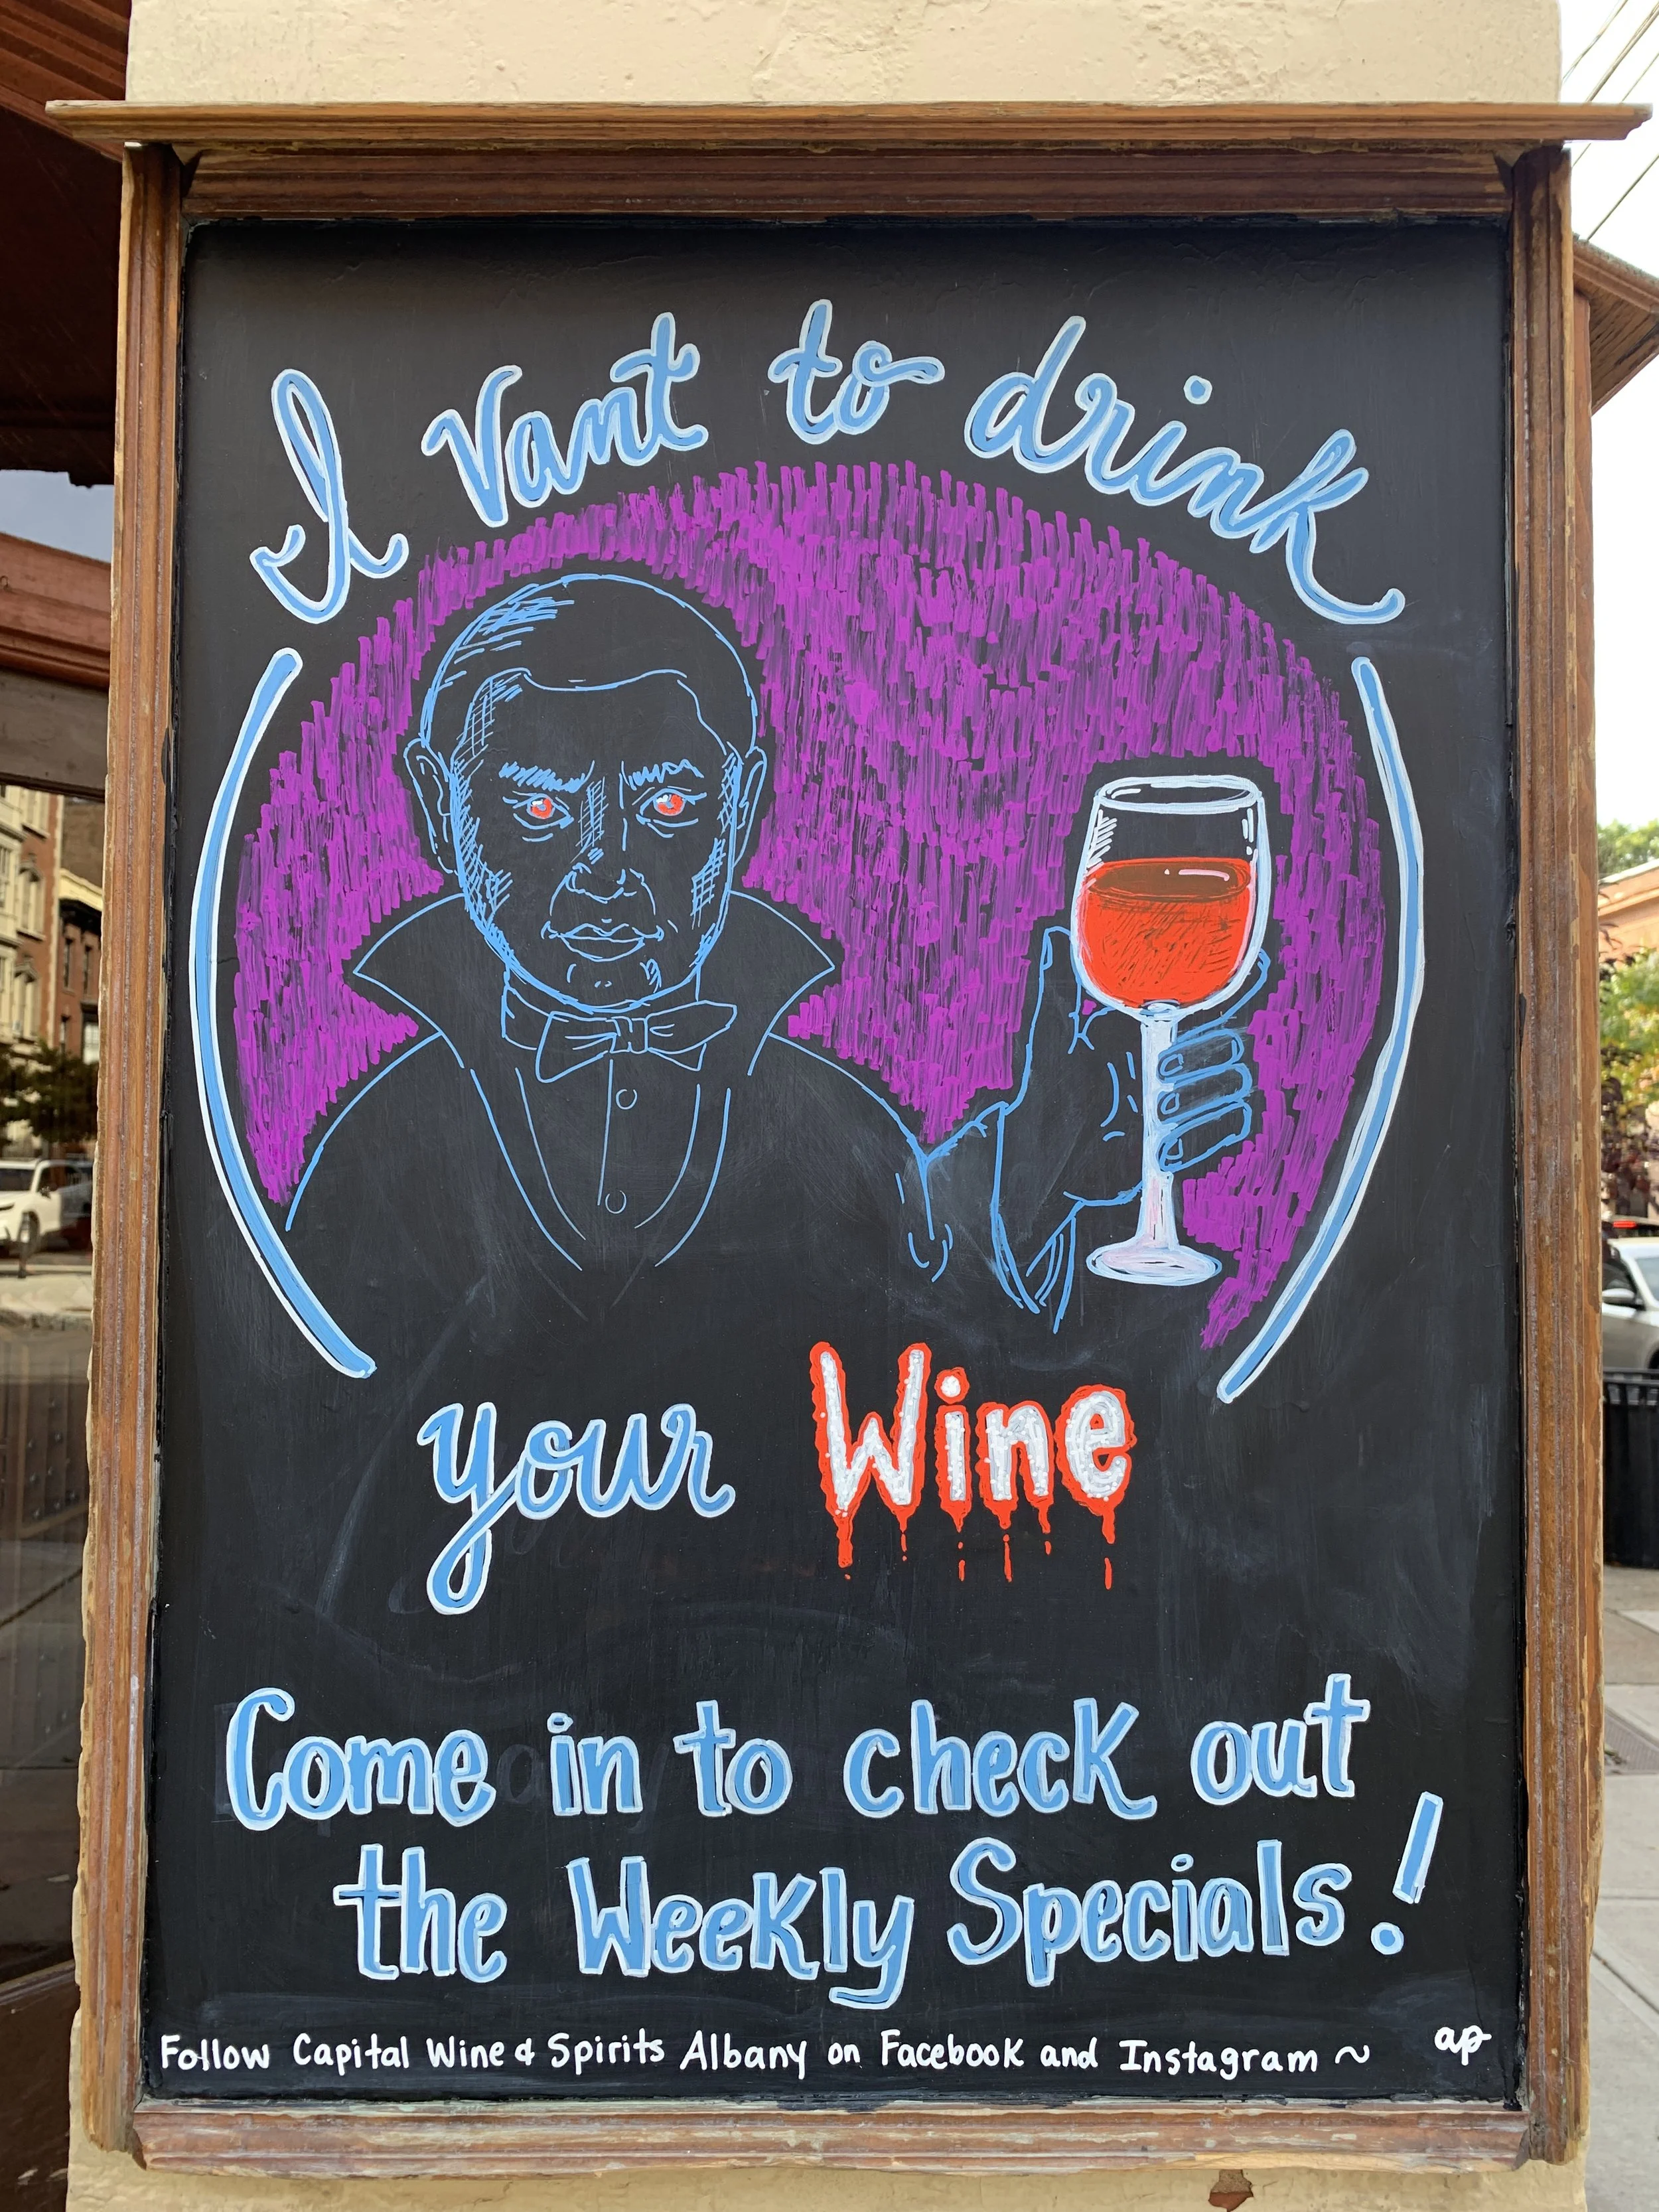 I vant to drink
your Wine
Come in to check out
the Weekly Specials!
Follow Capital Wine & Spirits Albany on Facebook and Instagram ~
ap